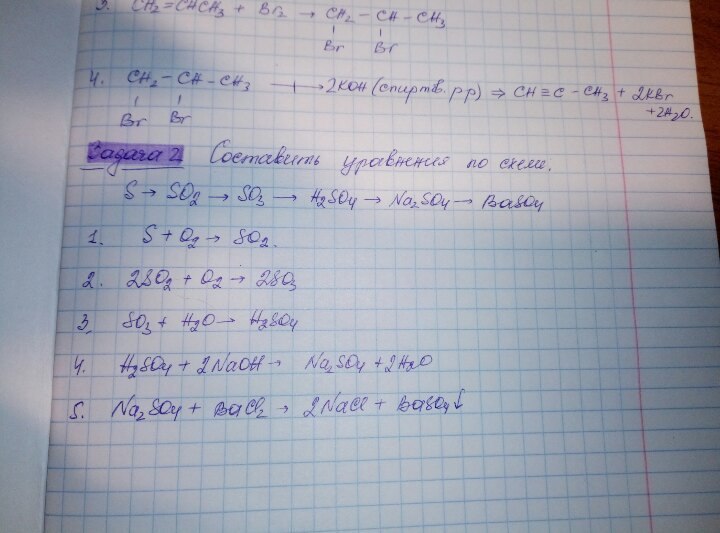 3. CH₂=CHCH₃ + Br₂ → CH₂ – CH – CH₃
Br Br
4. CH₂ – CH – CH₃ + → 2KOH (спиртов. р.р) ⇒ CH≡C – CH₃ + 2KBr
Br Br +2H₂O.
Задача 2. Составить уравнения по схеме.
S → SO₂ → SO₃ → H₂SO₄ → Na₂SO₄ → BaSO₄
1. S + O₂ → SO₂.
2. 2SO₂ + O₂ → 2SO₃
3. SO₃ + H₂O → H₂SO₄
4. H₂SO₄ + 2NaOH → Na₂SO₄ + 2H₂O
5. Na₂SO₄ + BaCl₂ → 2NaCl + BaSO₄↓